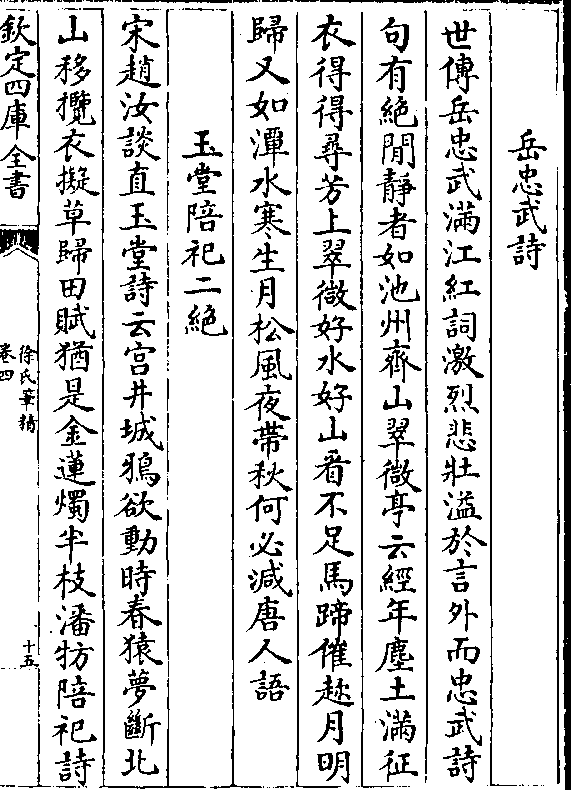 岳忠武詩
世傳岳忠武滿江紅詞激烈悲壯溢於言外而忠武詩
句有絶閒靜者如池州齊山翠微亭云經年塵土滿征
衣得得尋芳上翠微好水好山看不足馬蹄催趂月明
歸又如潭水寒生月松風夜帶秋何必減唐人語
玉堂陪祀二絶
宋趙汝談直玉堂詩云宫井城鴉欲動時春猿夢斷北
山移攬衣擬草歸田賦猶是金蓮燭半枝潘牥陪祀詩
欽定四庫全書
徐氏筆精
卷四
十五